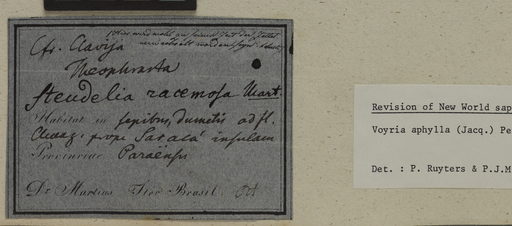 Cfr. Clavija
Theophrasta
Steudelia racemosa Mart.
Habitat in sepibus, dumetis ad fl.
Amaz. prope Saracá insulam
Provinciae Paraënsis
Dr. Martius Iter Brasil. Oct
Revision of New World sap
Voyria aphylla (Jacq.) Pe
Det. : P. Ruyters & P.J.M